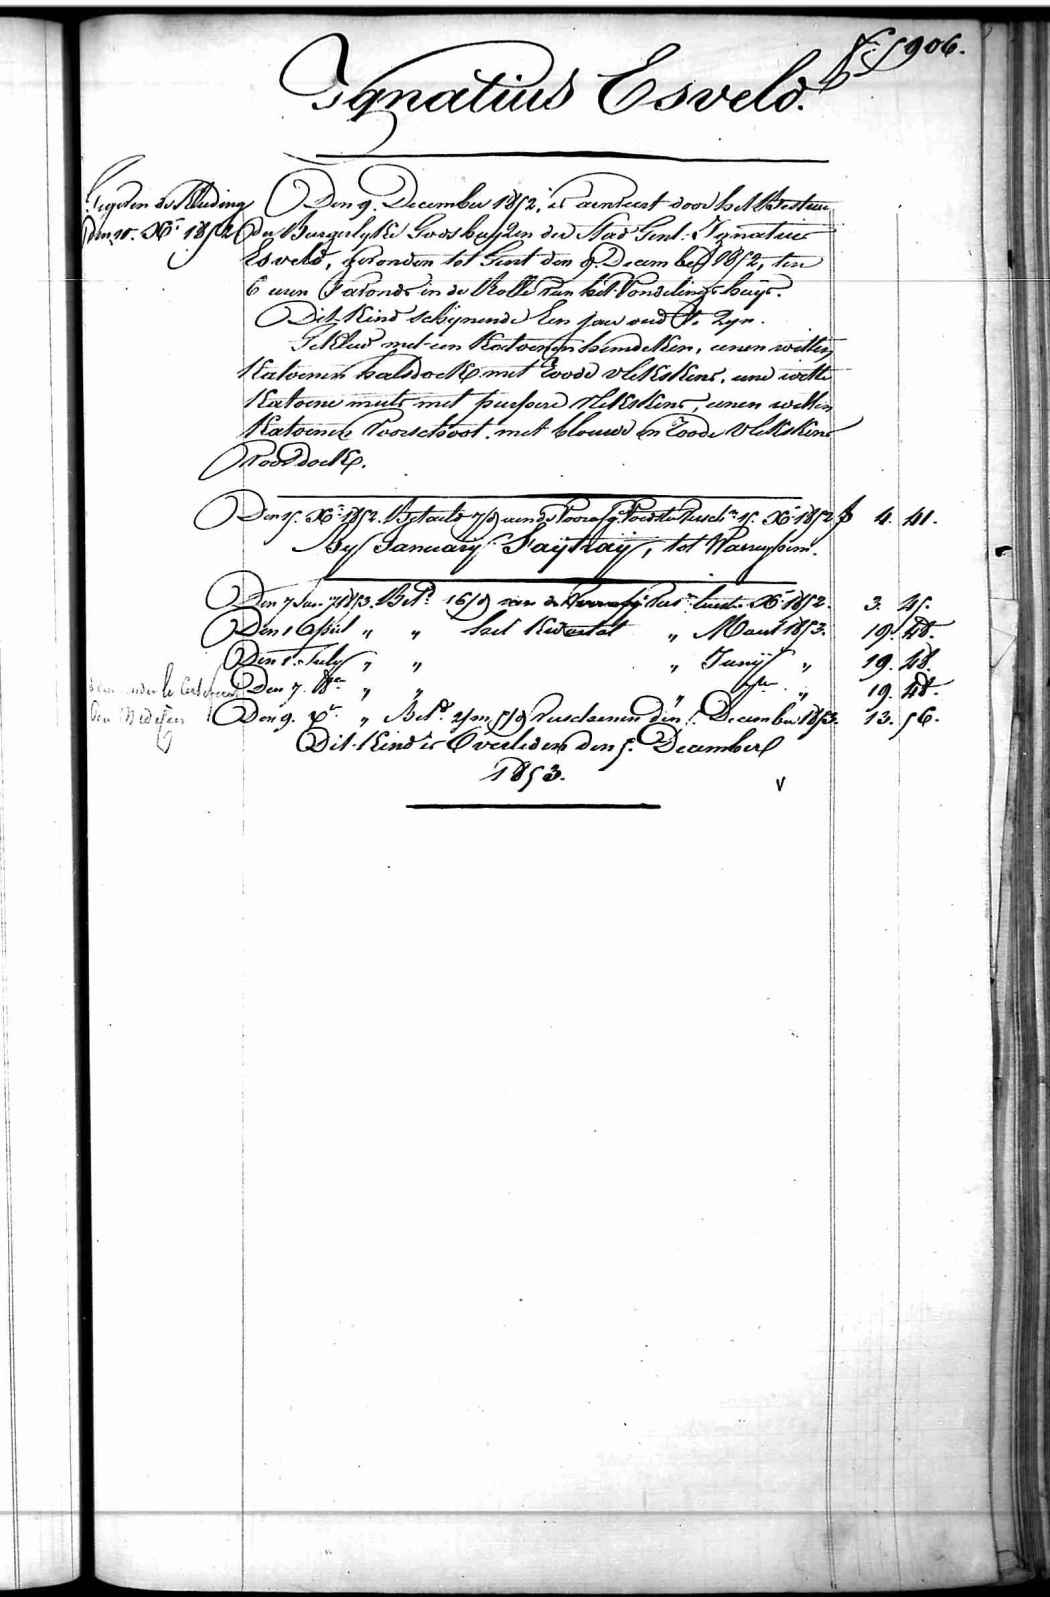 F: 5906.
Ignatius Esveld.
Gegeven de Kleeding
den 10. Xr. 1852
Den 9. December 1852, is aenveert door het Bestuur
der Burgerlyke Godshuyzen der Stad Gent. Ignatius
Esveld, gevonden tot Gent den 9. December 1852, ten
6 uren s'avonds in de Rolle van het Vondelingshuys.
Dit Kind schynende Een jaer oud te zyn.
Gekleed met een Katoenen hemdeken, eenen witten
Katoenen halsdoek met roode vlekskens, eene witte
Katoene muts met purpere vlekskens, eenen witten
Katoenen Voorschoot met blouwe en roode vlekskens
voordoek.
Den 15. Xr. 1852. Betaeld 7/9 van de Xr. 1852 4. 41.
By January Saytray, tot Waereghem.
Den 7 Jan. 1853. Betd. 16/9 van de Xr. 1852. 3. 45.
Den 1 April " " het Kwartal " Maert 1853. 19. 48.
Den 1. July " " " Junij " 19. 48.
Den 7. 8ber " " " 7ber " 19. 48.
Den 9. Xr. " Betd. 2/m 5/9 Verschenen den 5. December 1853. 13. 56.
den Medesen
Dit Kind is Overleden den 5. December
1853.
v